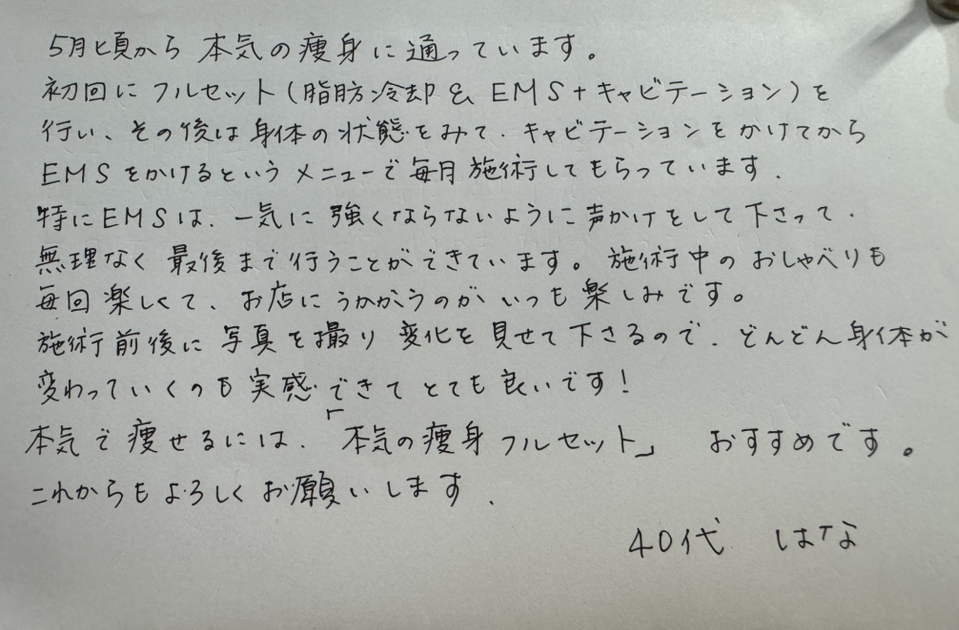 5月頃から 本気の痩身に通っています。
初回に フルセット(脂肪冷却 & EMS+キャビテーション)を
行い、その後は身体の状態をみて、キャビテーションをかけてから
EMSをかけるという メニューで毎月 施術してもらっています.
特にEMSは、一気に強くならないように声かけをして下さって、
無理なく 最後まで行うことができています。施術中の おしゃべりも
毎回 楽しくて、お店にうかがうのが いつも 楽しみです。
施術前後に 写真を撮り 変化を 見せて 下さるので、どんどん身体が
変わっていくのも 実感できて とても 良いです!
本気で 痩せるには、「本気の痩身 フルセット」 おすすめです。
これからもよろしくお願いします.
40代 はな